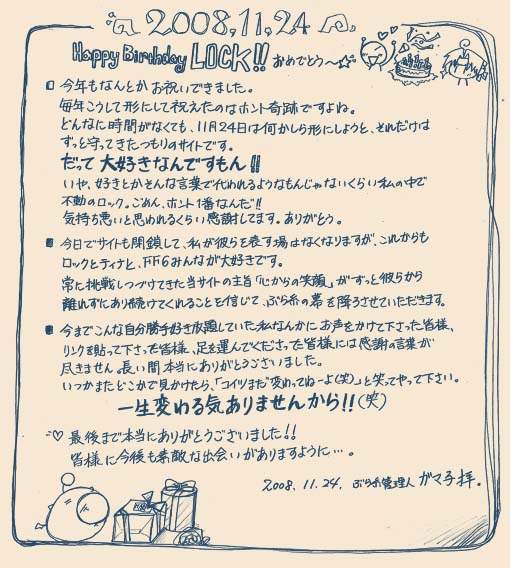 2008.11.24
Happy Birthday LOCK!! おめでとう〜☆
今年もなんとかお祝いできました。
毎年こうして形にして祝えたのはホント奇跡ですよね。
どんなに時間がなくても、11月24日は何かしら形にしようと、それだけは
ずっと守ってきたつもりのサイトです。
だって大好きなんですもん!!
いや、好きとかそんな言葉で代われるようなもんじゃないくらい私の中で
不動のロック。ごめん、ホント1番なんだ!!
気持ち悪いと思われるくらい感謝してます。ありがとう。
今日でサイトも閉鎖して、私が彼らを表す場はなくなりますが、これからも
ロックとティナと、FF6みんなが大好きです。
常に挑戦しつづけてきた当サイトの主旨「心からの笑顔」がずっと彼らから
離れずにあり続けてくれることを信じて、ぶら糸の幕を降ろさせていただきます。
今までこんな自分勝手好き放題していた私なんかにお声をかけて下さった皆様、
リンクを貼って下さった皆様、足を運んでくださった皆様には感謝の言葉が
尽きません。長い間本当にありがとうございました。
いつかまたどこかで見かけたら、「コイツまだ変わってねーよ(笑)」と笑ってやって下さい。
一生変わる気ありませんから!!(笑)
♡最後まで本当にありがとうございました!!
皆様に今後も素敵な出会いがありますように…。
2008.11.24. ぶら糸管理人 ガマ子拝。